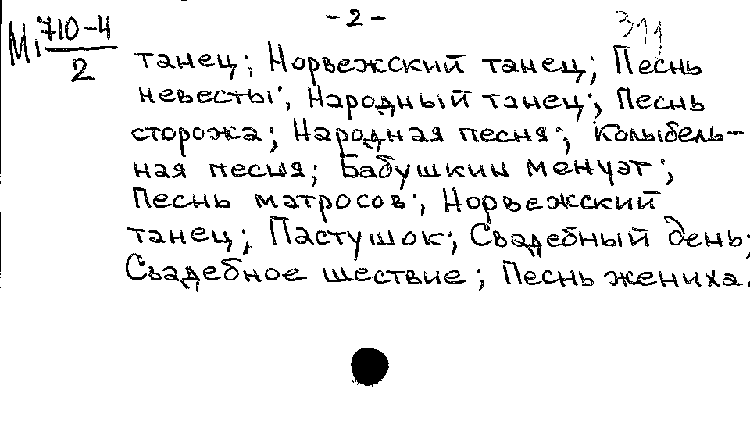 - 2 -
311
М1 710-4
2
танец; Норвежский танец; Песнь
невесты; Народный танец; Песнь
сторожа; Народная песня; Колыбель-
ная песня; Бабушкин менуэт;
Песнь матросов; Норвежский
танец; Пастушок; Свадебный день;
Свадебное шествие; Песнь жениха.